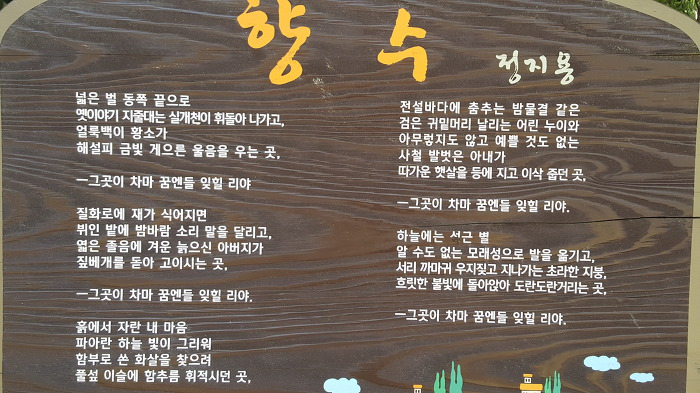 향수
정지용
넓은 벌 동쪽 끝으로
옛이야기 지줄대는 실개천이 휘돌아 나가고,
얼룩백이 황소가
해설피 금빛 게으른 울음을 우는 곳,
—그곳이 차마 꿈엔들 잊힐 리야
질화로에 재가 식어지면
뷔인 밭에 밤바람 소리 말을 달리고,
엷은 졸음에 겨운 늙으신 아버지가
짚베개를 돋아 고이시는 곳,
—그곳이 차마 꿈엔들 잊힐 리야.
흙에서 자란 내 마음
파아란 하늘 빛이 그리워
함부로 쏜 화살을 찾으려
풀섶 이슬에 함추름 휘적시던 곳,
전설바다에 춤추는 밤물결 같은
검은 귀밑머리 날리는 어린 누이와
아무렇지도 않고 예쁠 것도 없는
사철 발벗은 아내가
따가운 햇살을 등에 지고 이삭 줍던 곳,
—그곳이 차마 꿈엔들 잊힐 리야.
하늘에는 성근 별
알 수도 없는 모래성으로 발을 옮기고,
서리 까마귀 우지짖고 지나가는 초라한 지붕,
흐릿한 불빛에 돌아앉아 도란도란거리는 곳,
—그곳이 차마 꿈엔들 잊힐 리야.